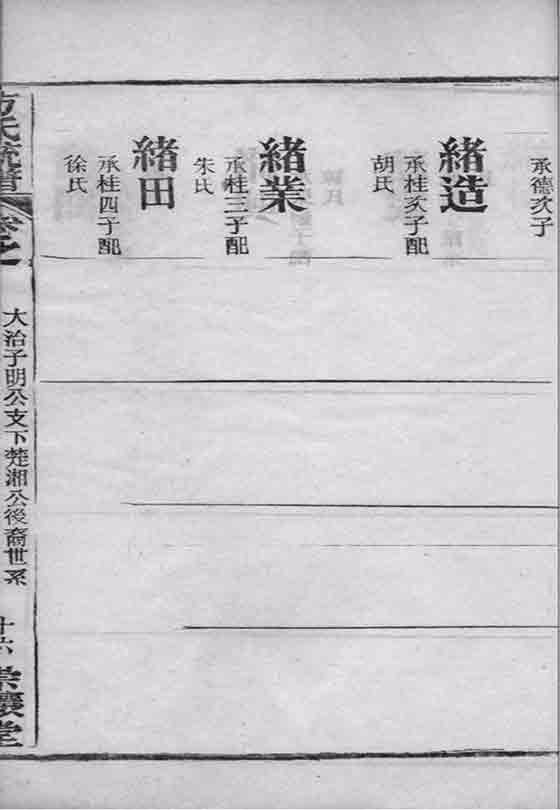 承德次子
緒造
承桂次子配
胡氏
緒業
承桂三子配
朱氏
緒田
承桂四子配
徐氏
方氏統譜
大治子明公支下楚湘公後裔世系
十六